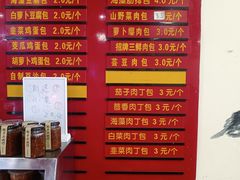 海藻豆腐包 2.0元/个
白萝卜豆腐包 2.0元/个
韭菜鸡蛋包 2.0元/个
茭瓜鸡蛋包 2.0元/个
胡萝卜鸡蛋包 2.0元/个
自制豆沙包
山野菜肉包
萝卜缨肉包 3.0元/个
招牌三鲜肉包 3.0元/个
芸豆肉包 3.0元/个
茄子肉丁包 3元/个
茴香肉丁包 3元/个
海藻肉丁包 3元/个
白菜肉丁包 3元/个
韭菜肉丁包 3元/个